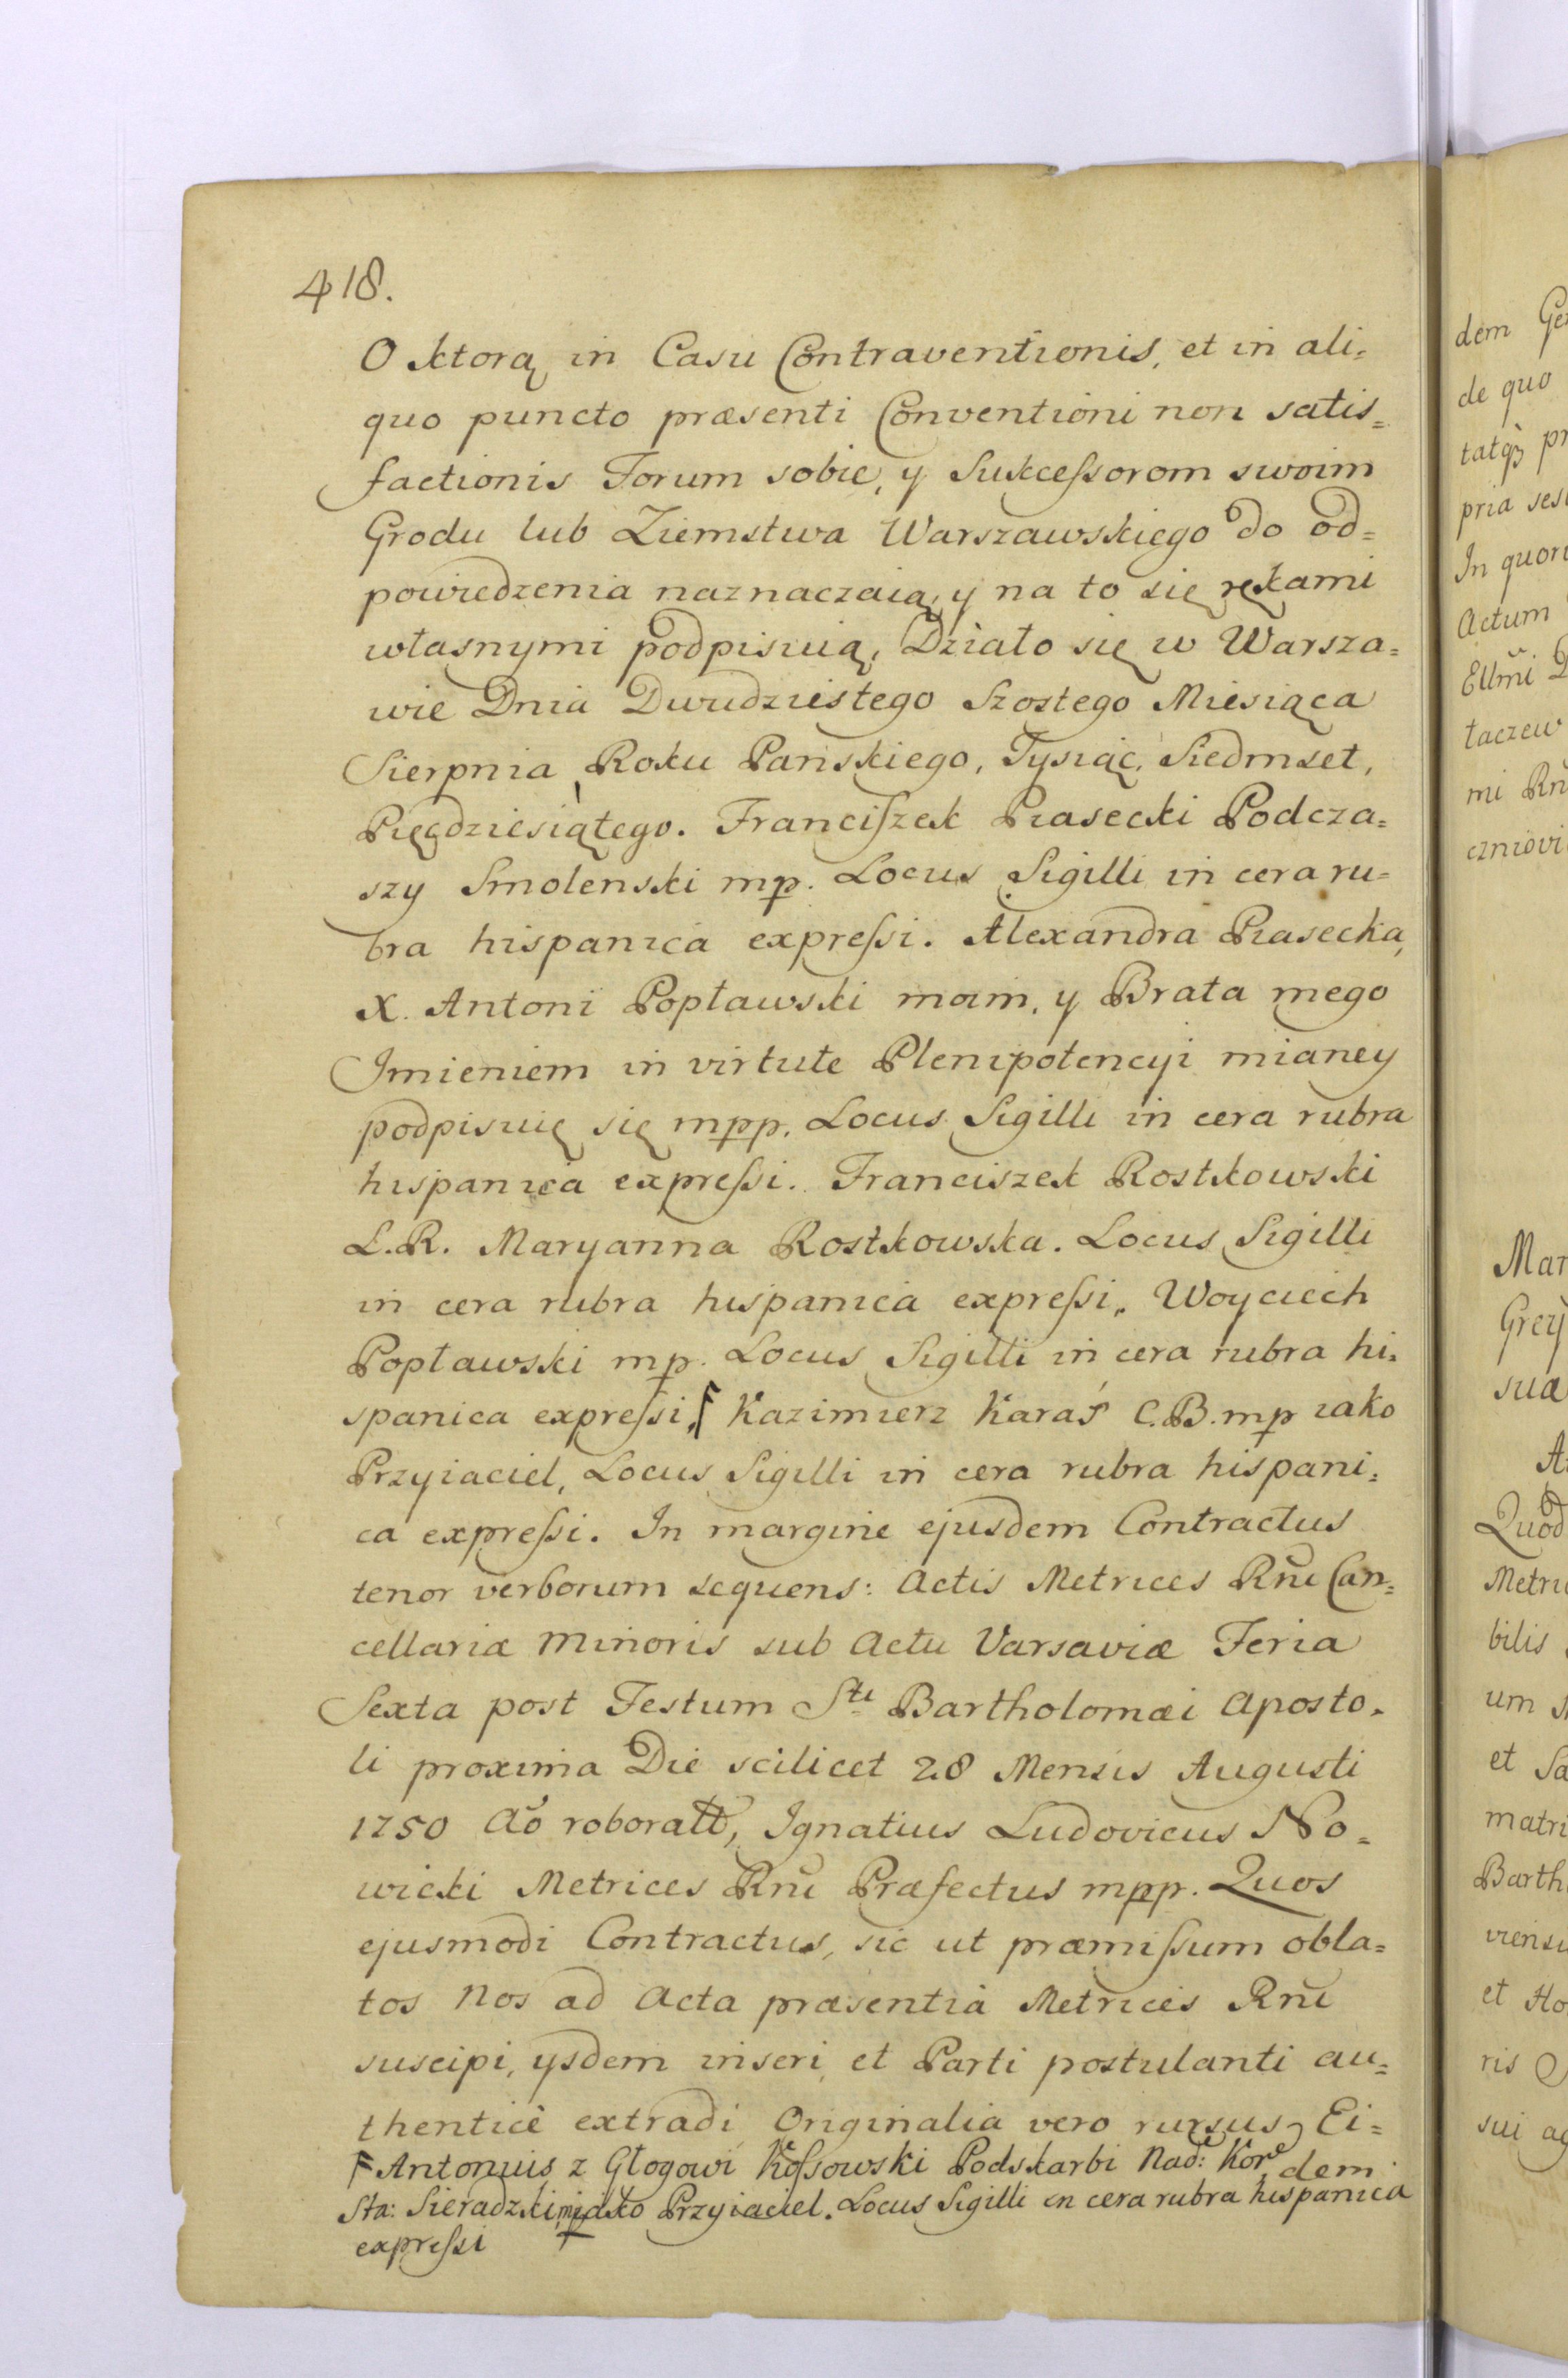 418.
O ktorą in Casu Contraventionis, et in ali=
quo puncto præsenti Conventioni non satis=
factionis Forum sobie, y Sukceſsorom swoim
Grodu lub Ziemstwa Warszawskiego do od=
powiedzenia naznaczaią, y na to się rękami
własnymi podpisuią, Działo się w Warsza=
wie Dnia Dwudziestego Szostego Miesiąca
Sierpnia Roku Pańskiego, Tysiąc, Siedmset,
Pięcdziesiątego. Franciſzek Piasecki Podcza=
szy Smolenski mp. Locus Sigilli in cera ru=
bra hispanica expreſsi. Alexandra Piasecka,
X. Antoni Popławski moim, y Brata mego
Imieniem in virtute Plenipotencyi mianey
podpisuię się mpp. Locus Sigilli in cera rubra
hispanica expreſsi. Franciszek Rostkowski
Ł.R. Maryanna Rostkowska. Locus Sigilli
in cera rubra hispanica expreſsi. Woyciech
Popławski mp. Locus Sigilli in cera rubra hi=
spanica expreſsi, F Kazimierz Karaś C.B. mp iako
Przyiaciel, Locus Sigilli in cera rubra hispani=
ca expreſsi. In margine ejusdem Contractus
tenor verborum sequens: Actis Metrices Rñi Can=
cellariæ Minoris sub Actu Varsaviæ Feria
Sexta post Festum Sti Bartholomæi Aposto=
li proxima Die scilicet 28 Mensis Augusti
1750 Aõ roboratt, Ignatius Ludovicus No=
wicki Metrices Rñi Præfectus mpp. Quos
ejusmodi Contractus, sic ut præmiſsum obla=
tos Nos ad Acta præsentia Metrices Rñi
suscipi, ysdem inseri, et Parti postulanti au=
thenticè extradi Originalia vero rursus Ei=
dem
F Antonius z Głogowi Koſsowski Podskarbi Nad: Kor
Sta: Sieradzki mp iako Przyiaciel. Locus Sigilli in cera rubra hispanica
expreſsi
dem
de quo
tatq3
pria
In quor
Actum
Ellmi
taczew
mi Rñ
czniovi
Mar
Grey
sua
Quod
Metri
bilis
um
et Sa
matri
Barth
viensi
et Ho
ris
sui ag